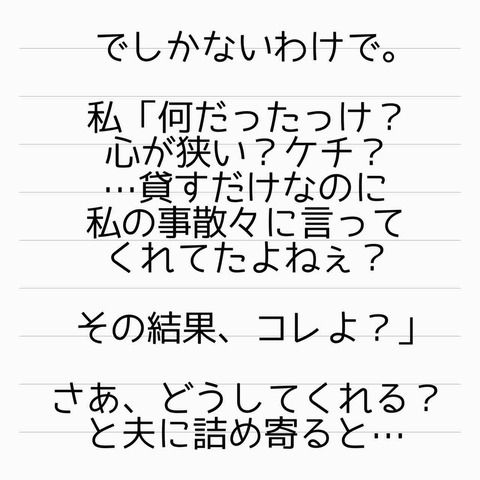 でしかないわけで。
私「何だったっけ？
心が狭い？ケチ？
…貸すだけなのに
私の事散々に言って
くれてたよねぇ？
その結果、コレよ？」
さあ、どうしてくれる？
と夫に詰め寄ると…